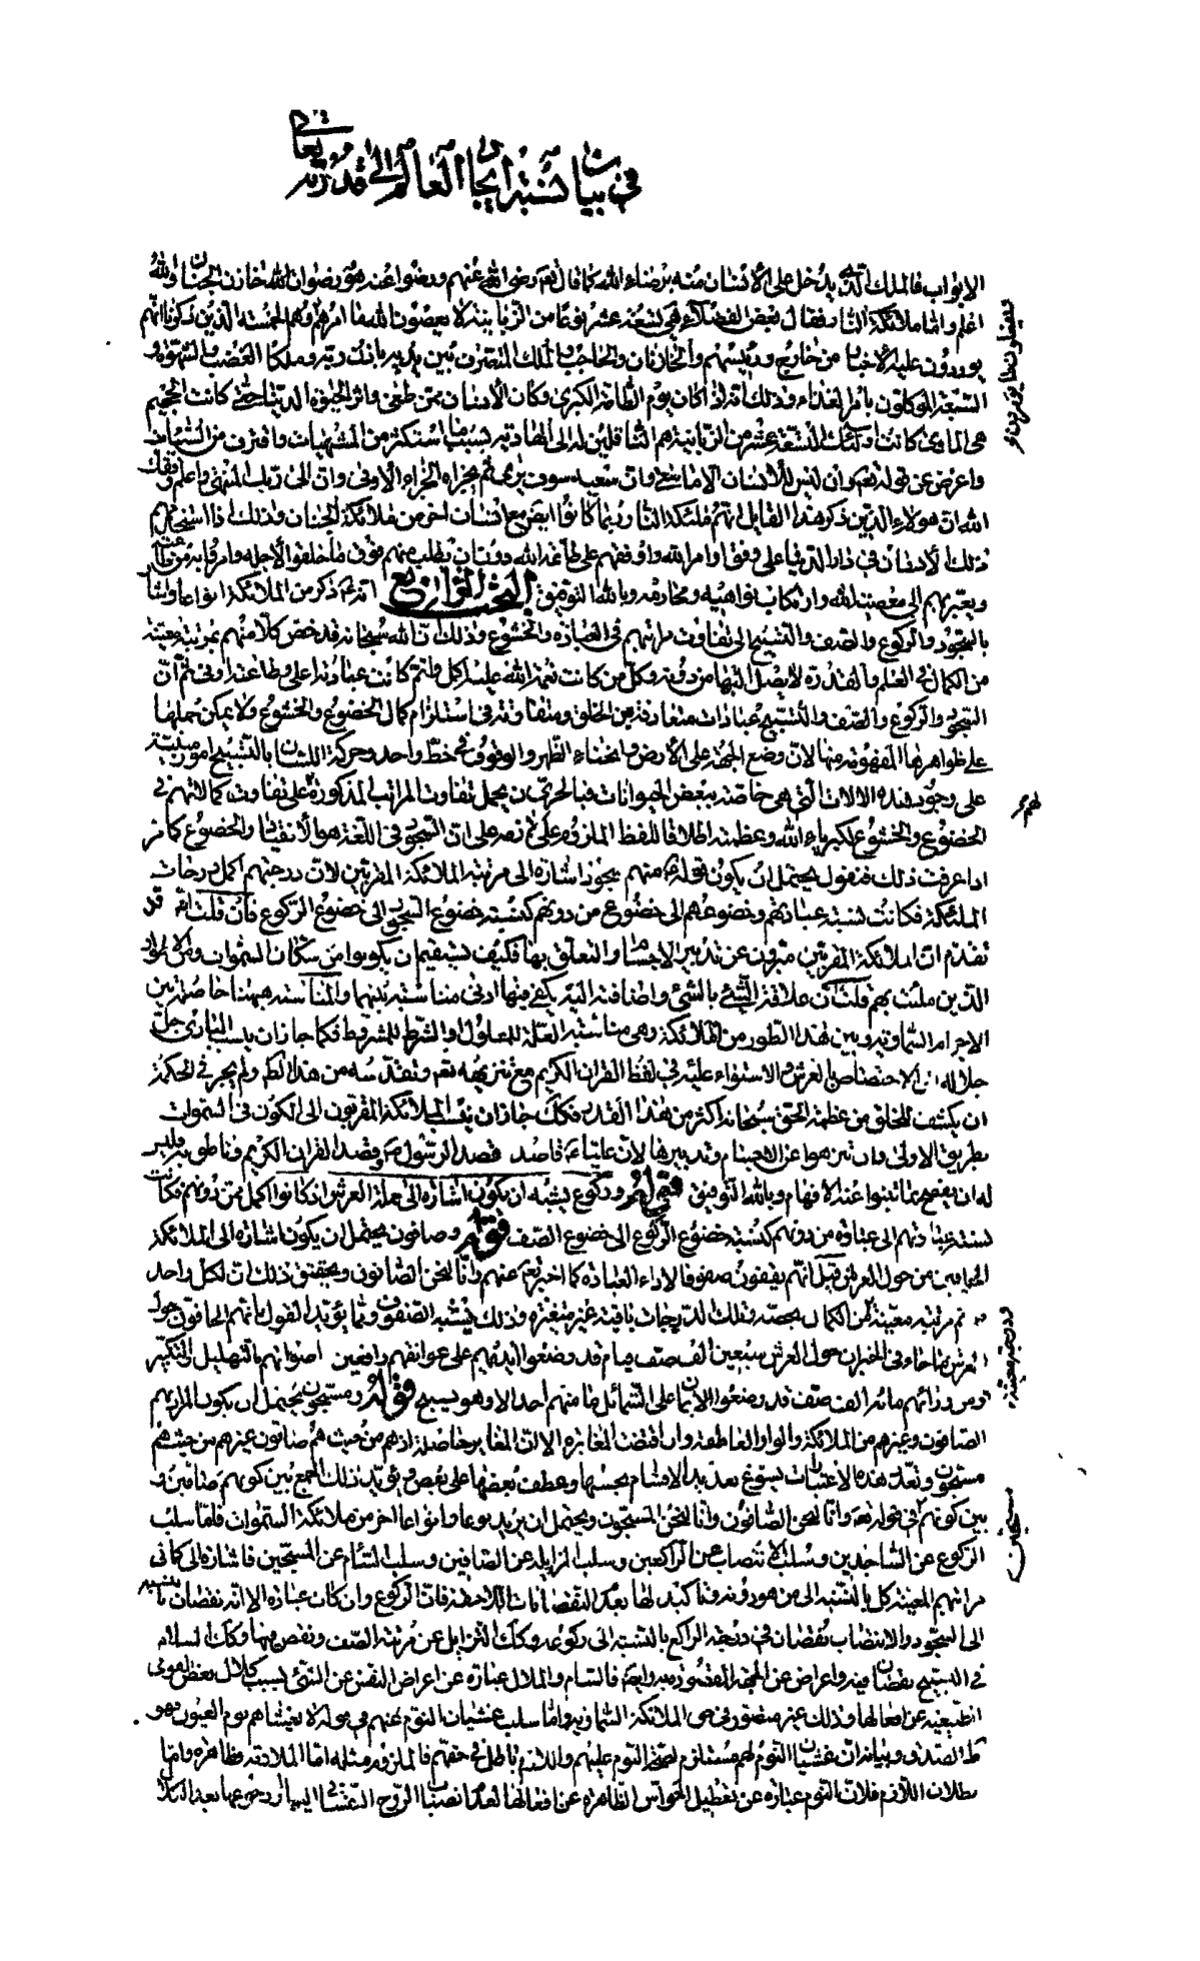 في بيان نسبة ايجاد العالم الى قدرته تعالى
الابواب فالملك الذي يدخل على الانسان منه برضاء الله كما قال تعم رضى الله عنهم ورضوا عنه هو رضوان الله خازن الجنان والله
اعلم واما ملائكة النار فقال بعض الفضلاء هي تسعة عشر نوعا من الزبانية لا يعصون الله ما امرهم وهم الخمسة الذين ذكرنا انهم
يوردون عليه الاخبار من خارج ورئيسهم والخازنان والحاجب والملك المتصرف بين يديه باذن ربه وملكا الغضب والشهوة و
السبعة الموكلون بامر الغذاء وذلك انه اذا كان يوم الطامة الكبرى وكان الانسان ممن طغى واثر الحيوة الدنيا حتى كانت الجحيم
هي الماوى كانت اولئك التسعة عشر من الزبانية هم الناقلين له الى الهاوية بسبب ما استكثر من المشتهيات واقترف من السيئات
واعرض عن قوله تعم وان ليس للانسان الا ما سعى وان سعيه سوف يرى ثم يجزاه الجزاء الاوفى وان الى ربك المنتهى واعلم وفقك
الله ان هولاء الذين ذكر هذا القايل انهم ملئكة النار ربما كانوا ايض مع انسان اخر من ملائكة الجنان وذلك اذا استخدمهم
ذلك الانسان في دار الدنيا على وفق اوامر الله واوقفهم على طاعة الله دون ان يطلب منهم فوق ما خلقوا لاجله وامروا به من طاعته
ويعبر بهم الى معصية الله وارتكاب نواهيه ومحارمه وبالله التوفيق البحث الرابع انه ع ذكر من الملائكة انواعا واشار
بالسجود والركوع والصف والتسبيح الى تفاوت مراتبهم في العبادة والخشوع وذلك ان الله سبحانه قد خص كلا منهم بمرتبة معينة
من الكمال في العلم والقدرة لا يصل اليها من دونه وكل من كانت نعمة الله عليه اكمل واتم كانت عبادته اعلى وطاعته اوفى ثم ان
السجود والركوع والصف والتسبيح عبادات متعارفة بين الخلق ومتفاوتة في استلزام كمال الخضوع والخشوع ولا يمكن حملها
على ظواهرها المفهومة منها لان وضع الجبهة على الارض وانحناء الظهر والوقوف في خط واحد وحركة اللسان بالتسبيح امور مبنية
على وجود هذه الالات التي هي خاصة ببعض الحيوانات فبالحري ان يحمل تفاوت المراتب المذكورة على تفاوت كمالاتهم في
الخضوع والخشوع لكبرياء الله وعظمته اطلاقا للفظ الملزوم على لازمه على ان السجود في اللغة هو الانقياد والخضوع كما مر
اذا عرفت ذلك فنقول يحتمل ان يكون قوله ع منهم سجود اشارة الى مرتبة الملائكة المقربين لان درجتهم اكمل درجات
الملئكة فكانت نسبة عبادتهم وخضوعهم الى خضوع من دونهم كنسبة خضوع السجود الى خضوع الركوع فان قلت انه قد
تقدم ان الملائكة المقربين مبرؤن عن تدبير الاجسام والتعلق بها فكيف يستقيم ان يكونوا من سكان السموات ومن
الذين ملئت بهم قلت ان علاقة الشئ بالشئ واضافته اليه يكفي فيها ادنى مناسبة بينهما والمناسبة ههنا حاصلة بين
الاجرام السماوية وبين هذا الطور من الملائكة وهي مناسبة العلة للمعلول او الشرط للمشروط فكما جاز ان ينسب البارى جل
جلاله الى الاختصاص بالعرش والاستواء عليه في لفظ القران الكريم مع تنزيهه تعم وتقدسه من هذا الظاهر ولم يجز في الحكمة
ان يكشف للخلق من عظمة الحق سبحانه اكثر من هذا القدر فكك جاز ان ينسب الملائكة المقربون الى الكون في السموات
بطريق الاولى وان تنزهوا عن الاجسام وتدبيرها لان عليا ع قاصد قصد الرسول ص وقصد القران الكريم وناطق به فليس
له ان يفصح بما تنبوا عنه الافهام وبالله التوفيق قوله وركوع يشبه ان يكون اشارة الى حملة العرش اذ كانوا اكمل ممن دونهم فكانت
نسبة عبادتهم الى عبادة من دونهم كنسبة خضوع الركوع الى خضوع الصف قوله وصافون يحتمل ان يكون اشارة الى الملائكة
الحافين من حول العرش قيل انهم يقفون صفوفا لاداء العبادة كما اخبر تعم عنهم وانا لنحن الصافون وتحقيق ذلك ان لكل واحد
منهم مرتبة معينة من الكمال يخصه وتلك الدرجات باقية غير متغيرة وذلك يشبه الصفوف ومما يؤيد القول بانهم الحافون حول
العرش ما جاء في الخبر ان حول العرش سبعين الف صف قيام قد وضعوا ايديهم على عواتقهم رافعين اصواتهم بالتهليل والتكبير
ومن ورائهم مائة الف صف قد وضعوا الايمان على الشمائل ما منهم احد الا وهو يسبح قوله ومسبحون يحتمل ان يكون المراد بهم
الصافون وغيرهم من الملائكة والواو العاطفة وان اقتضت المغايرة الا ان المغايرة حاصلة اذ هم من حيث هم صافون غيرهم من حيث هم
مسبحون وتعدد هذه الاعتبارات يسوغ تعديد الاقسام بحسبها وعطف بعضها على بعض ويؤيد ذلك الجمع بين كونهم صافين و
بين كونهم في قوله تعم وانا لنحن الصافون وانا لنحن المسبحون ويحتمل ان يريد نوعا وانواعا اخر من ملائكة السموات فاما سلب
الركوع عن الساجدين وسلب الانتصاب عن الراكعين وسلب المزايلة عن الصافين وسلب السام عن المسبحين فاشارة الى كمال
مراتبهم المعينة كل بالنسبة الى من هو دونه وتاكيد لها بعد النقصانات اللاحقة فان الركوع وان كان عبادة الا انه نقصان بالنسبة
الى السجود والانتصاب نقصان في درجة الراكع بالنسبة الى ركوعه وكك التزايل عن مرتبة الصف ونقص فيها وكك السام
في التسبيح نقصان فيه واعراض عن الجهة المقصودة به وايض فالسام والملال عبارة عن اعراض النفس عن الشئ بسبب كلال بعض القوى
الطبيعية عن افعالها وذلك غير متصور في حق الملائكة السماوية واما سلب غشيان النوم عنهم في قوله لا يغشاهم نوم العيون فهو
ظ الصدق وبيانه ان غشيان النوم لهم مستلزم لصحة النوم عليهم واللازم باطل في حقهم فالملزوم مثله اما الملازمة فظاهرة واما
بطلان اللازم فلان النوم عبارة عن تعطيل الحواس الظاهرة عن افعالها لعدم انصباب الروح النفساني اليها او رجوعها بعد الكلال